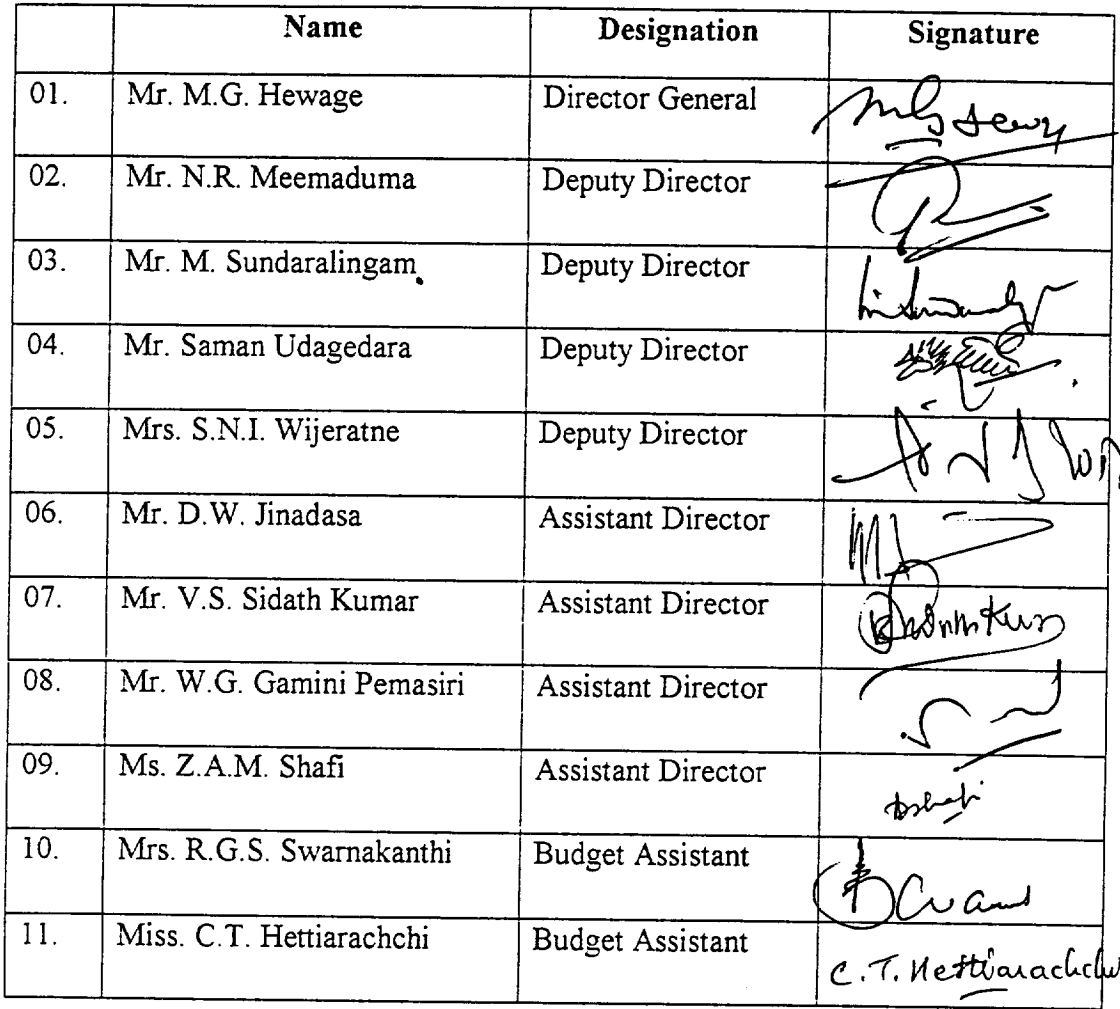 Name Designation Signature
01. Mr. M.G. Hewage Director General
02. Mr. N.R. Meemaduma Deputy Director
03. Mr. M. Sundaralingam Deputy Director
04. Mr. Saman Udagedara Deputy Director
05. Mrs. S.N.I. Wijeratne Deputy Director
06. Mr. D.W. Jinadasa Assistant Director
07. Mr. V.S. Sidath Kumar Assistant Director
08. Mr. W.G. Gamini Pemasiri Assistant Director
09. Ms. Z.A.M. Shafi Assistant Director
10. Mrs. R.G.S. Swarnakanthi Budget Assistant
11. Miss. C.T. Hettiarachchi Budget Assistant C.T. Hettiarachchi